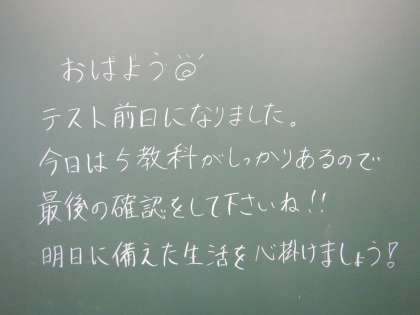 おはよう
テスト前日になりました。
今日は5教科がしっかりあるので
最後の確認をして下さいね!!
明日に備えた生活を心掛けましょう!